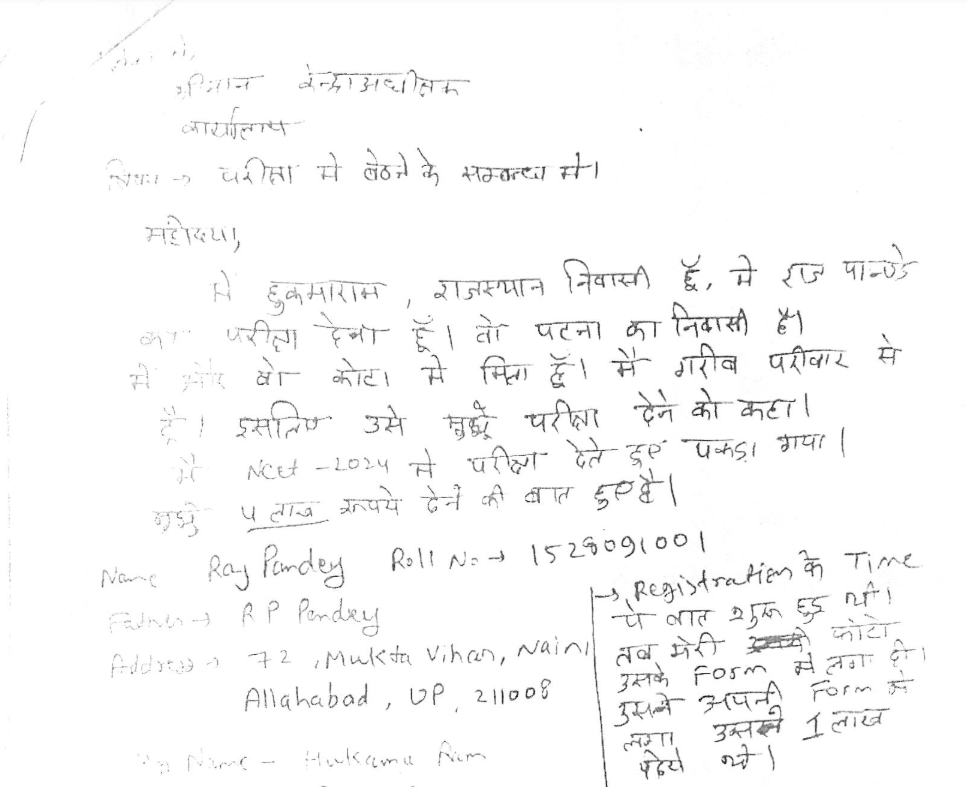 सेवा में,
श्रीमान केन्द्राअधीक्षक
कार्यालय
विषय → परीक्षा मे बेठने के सम्बन्ध मे।
महोदया,
मे हुकमाराम , राजस्थान निवासी हूँ, मे राज पाण्डे
का परीक्षा देना हूँ। वो पटना का निवासी है।
मे और वो कोटा मे मिला हूँ। मै गरीब परीवार से
हूँ। इसलिए उसे मुझे परीक्षा देने को कहा।
मै Ncet -2024 मे परीक्षा देते हुए पकड़ा गया।
मुझे 4 लाख रूपये देने की बात हुए है।
Name Raj Pandey Roll No → 1528091001
Father → R P Pandey
Address → 72 , Mukta Vihar, Naini
Allahabad, UP, 211008
My Name - Hukama Ram
→ Registration के Time
पे बात शुरू हुइ थी।
तब मेरी फोटो
उसके Form मे लगा दी।
उसने अपनी Form मे
लगा उसने 1 लाख
थे।